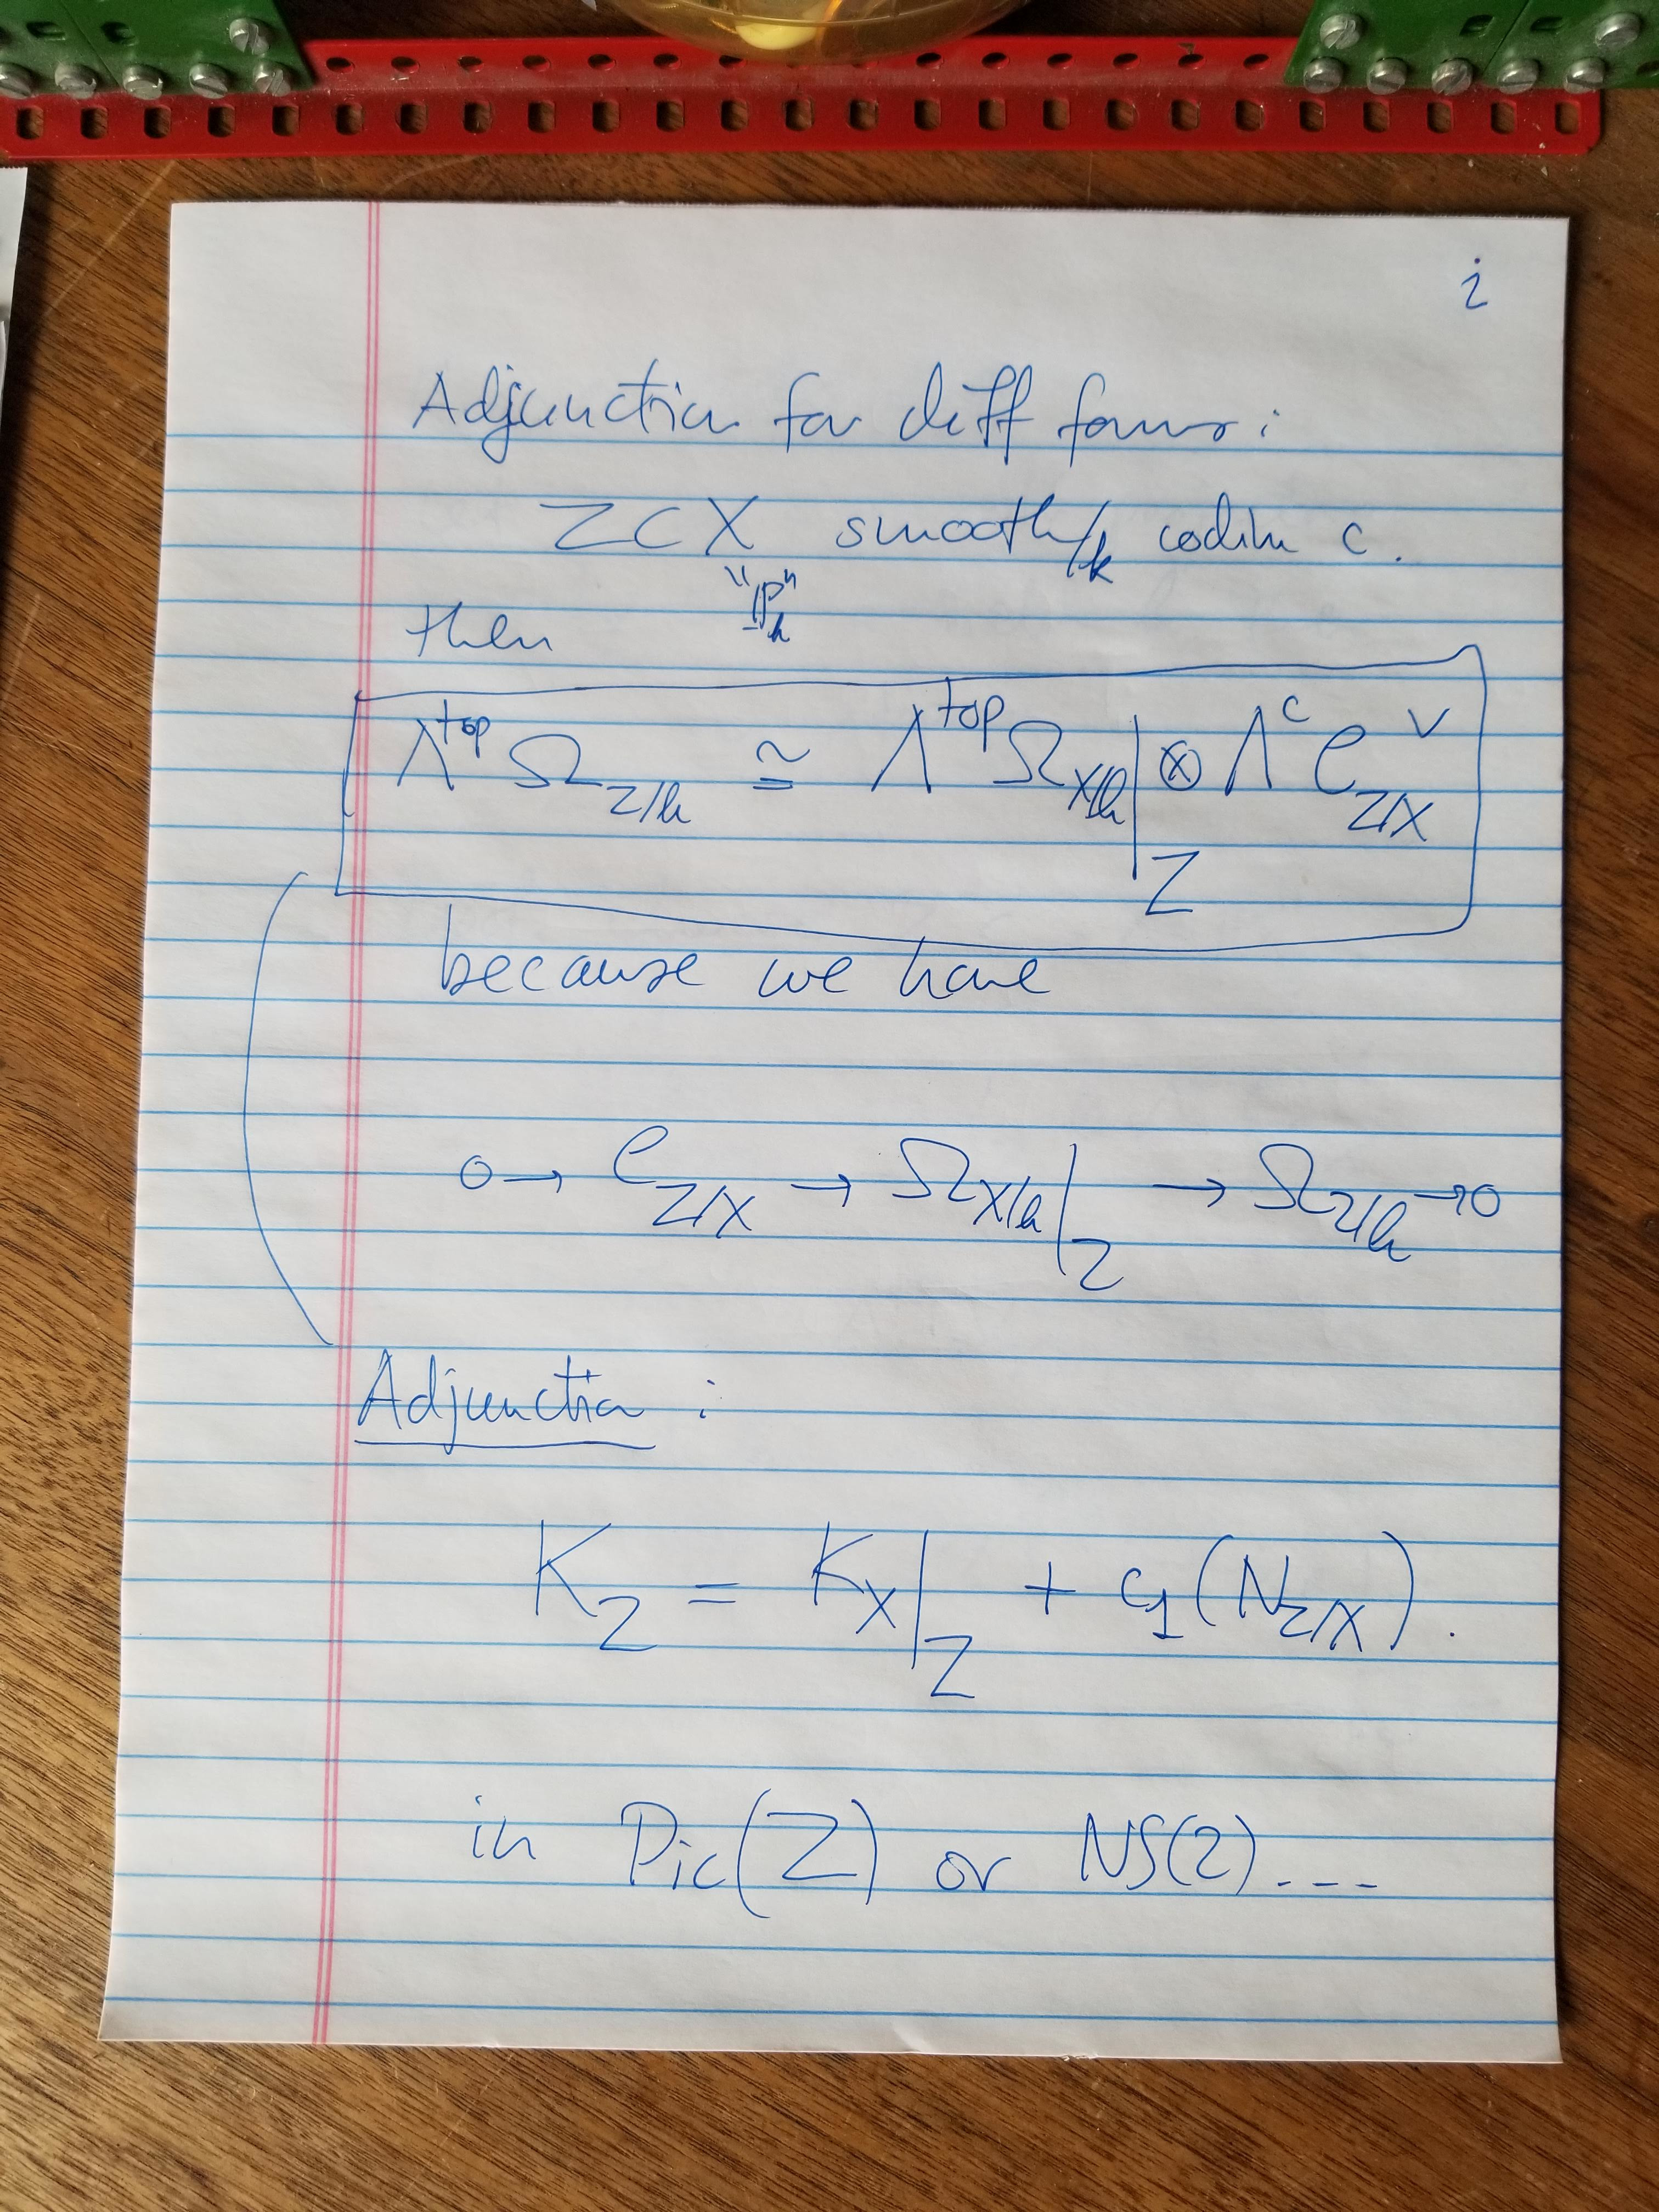 i
Adjunction for diff forms:
Z ⊂ X smooth/k codim c.
"ℙₖ"
then
Λ^top Ω_{Z/k} ≅ Λ^top Ω_{X/k}|_Z ⊗ Λ^c C_{Z/X}^∨
because we have
0 → C_{Z/X} → Ω_{X/k}|_Z → Ω_{Z/k} → 0
Adjunction:
K_Z = K_X|_Z + c₁(N_{Z/X}).
in Pic(Z) or NS(Z)....